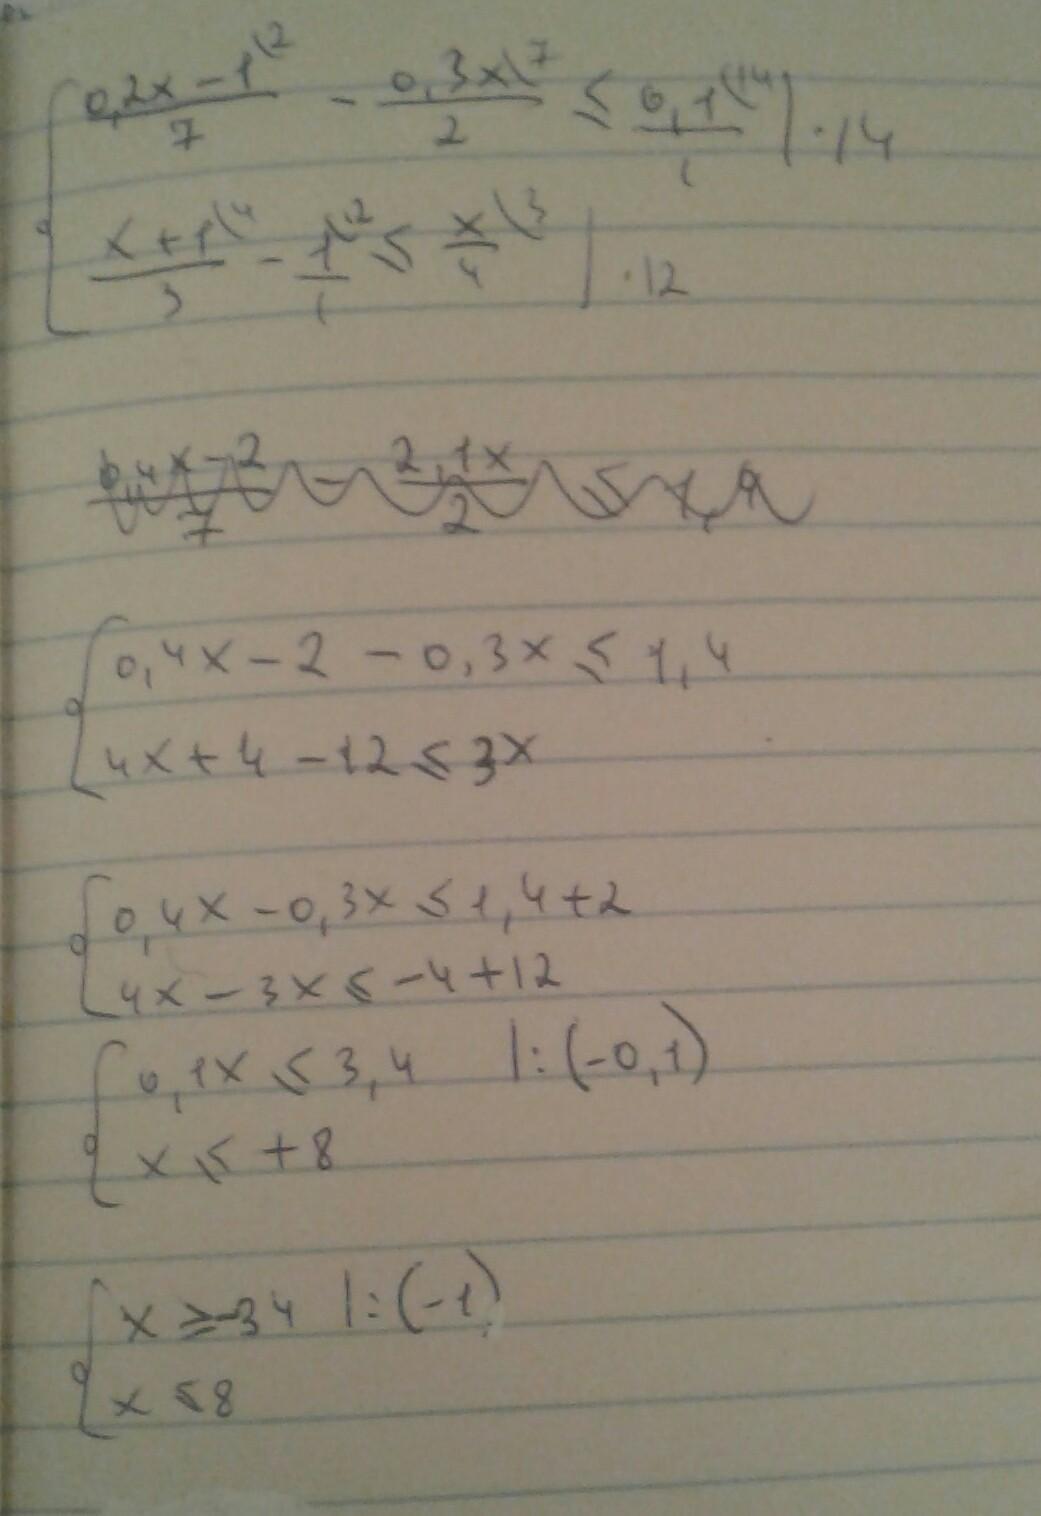 (0,2x - 1\2)/7 - 0,3x\7/2 ≤ 0,1\14/1 | · 14
(x + 1\4)/3 - 1\12/1 ≤ x\3/4 | · 12
(0,4x - 2)/7 - 2,1x/2 ≤ 1,4
0,4x - 2 - 0,3x ≤ 1,4
4x + 4 - 12 ≤ 3x
0,4x - 0,3x ≤ 1,4 + 2
4x - 3x ≤ -4 + 12
0,1x ≤ 3,4 |: (-0,1)
x ≤ +8
x ≥ -34 |: (-1)
x ≤ 8